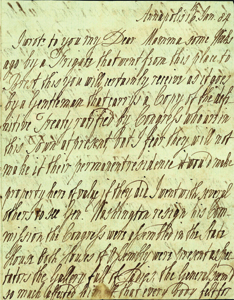 Annapolis 16 Jan. 84
I wrote to you my Dear Momma some
ago by a Frigate that went from this place to
Brest this you will certainly receive as it goes
by a Gentleman that carrys a Copy of the defi
nitive Treaty ratified by Congress who are in
this Town at present but I fear they will not
make it their permanent residence it would make
property here of value if they did I went with several
others to see Gen. Washington resign his Com
mission the Congress were assembled in the State
House both Houses of Assembly were present as spec
tators the Gallery full of Ladies the General seem'd
so much affected himself that every body felt for